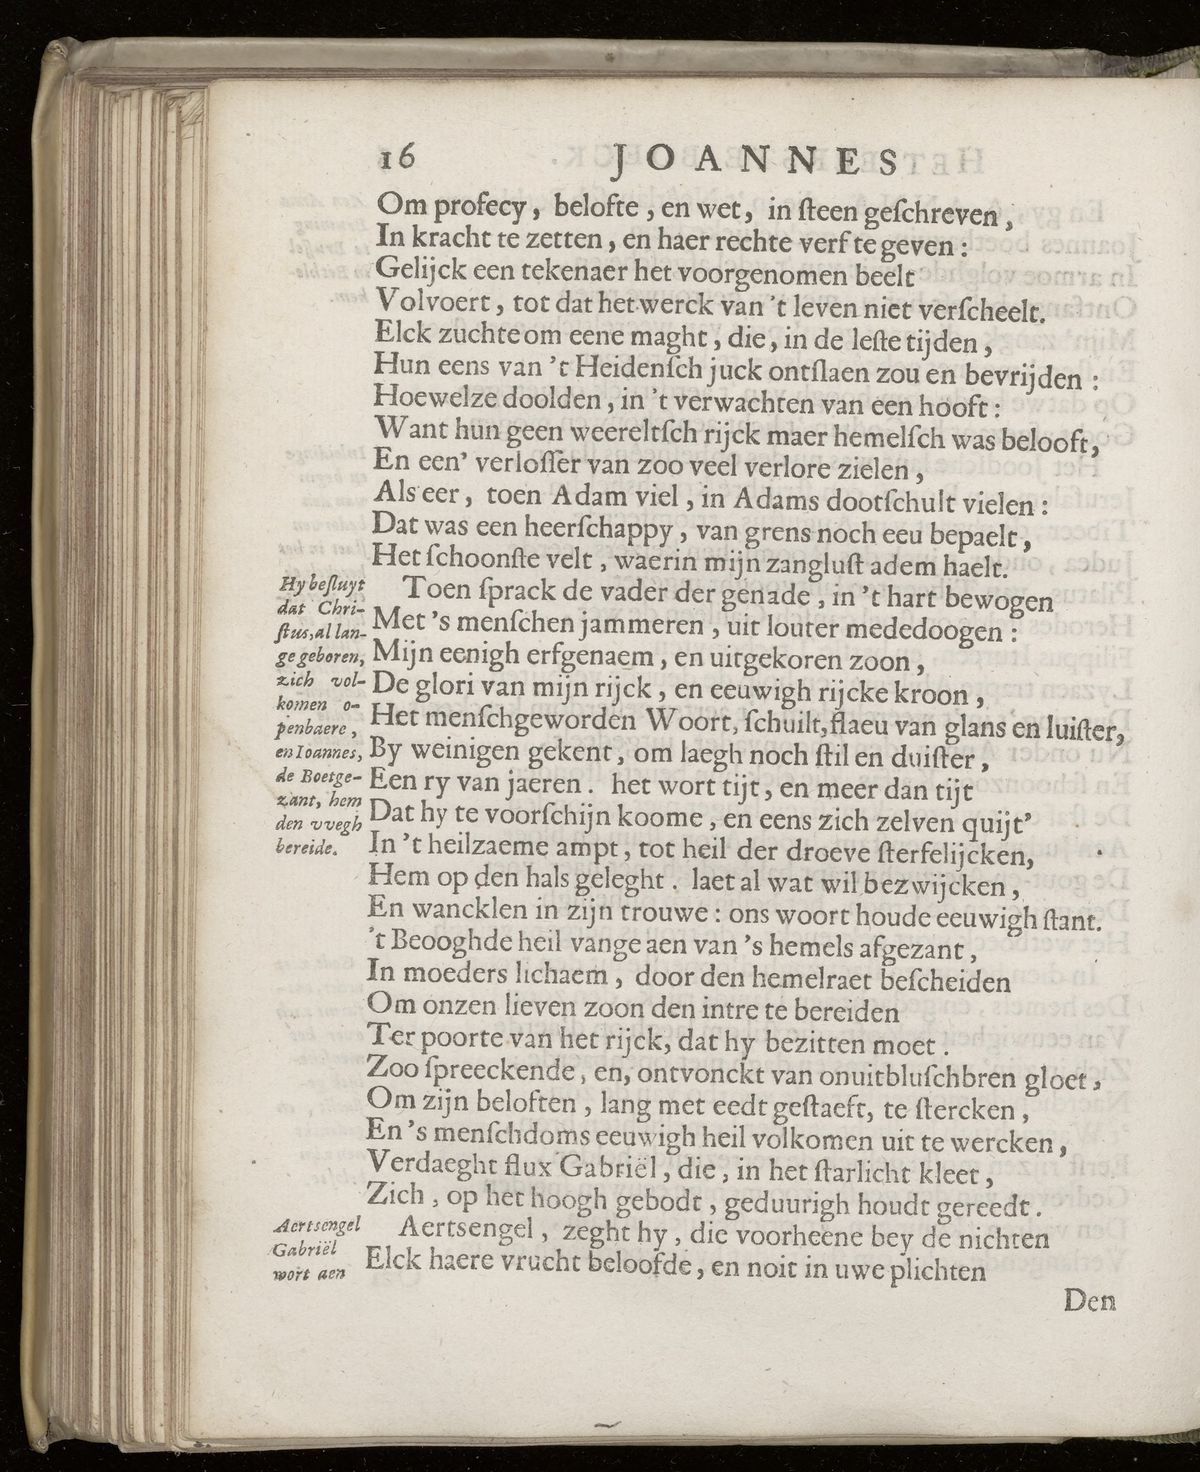 16 JOANNES
Om profecy, belofte, en wet, in ſteen geſchreven,
In kracht te zetten, en haer rechte verf te geven:
Gelijck een tekenaer het voorgenomen beelt
Volvoert, tot dat het werck van 't leven niet verſcheelt.
Elck zuchte om eene maght, die, in de leſte tijden,
Hun eens van 't Heidenſch juck ontſlaen zou en bevrijden:
Hoewelze doolden, in 't verwachten van een hooft:
Want hun geen weereltſch rijck maer hemelſch was belooft,
En een' verloſſer van zoo veel verlore zielen,
Als eer, toen Adam viel, in Adams dootſchult vielen:
Dat was een heerſchappy, van grens noch eeu bepaelt,
Het ſchoonſte velt, waerin mijn zangluſt adem haelt.
Hy beſluyt
dat Chri-
ſtus, al lan-
ge geboren,
zich vol-
komen o-
penbaere,
en Ioannes,
de Boetge-
zant, hem
den vvegh
bereide.
Toen ſprack de vader der genade, in 't hart bewogen
Met 's menſchen jammeren, uit louter mededoogen:
Mijn eenigh erfgenaem, en uitgekoren zoon,
De glori van mijn rijck, en eeuwigh rijcke kroon,
Het menſchgeworden Woort, ſchuilt, flaeu van glans en luiſter,
By weinigen gekent, om laegh noch ſtil en duiſter,
Een ry van jaeren. het wort tijt, en meer dan tijt
Dat hy te voorſchijn koome, en eens zich zelven quijt'
In 't heilzaeme ampt, tot heil der droeve ſterfelijcken,
Hem op den hals geleght. laet al wat wil bezwijcken,
En wancklen in zijn trouwe: ons woort houde eeuwigh ſtant.
't Beooghde heil vange aen van 's hemels afgezant,
In moeders lichaem, door den hemelraet beſcheiden
Om onzen lieven zoon den intre te bereiden
Ter poorte van het rijck, dat hy bezitten moet.
Zoo ſpreeckende, en, ontvonckt van onuitbluſchbren gloet,
Om zijn beloften, lang met eedt geſtaeft, te ſtercken,
En 's menſchdoms eeuwigh heil volkomen uit te wercken,
Verdaeght flux Gabriël, die, in het ſtarlicht kleet,
Zich, op het hoogh gebodt, geduurigh houdt gereedt.
Aertsengel
Gabriël
wort aen
Aertsengel, zeght hy, die voorheene bey de nichten
Elck haere vrucht beloofde, en noit in uwe plichten
Den